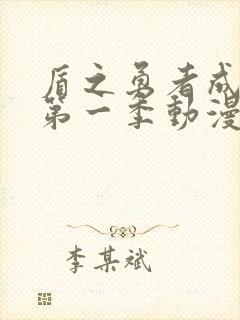 盾之勇者成
第一季動漫
李某斌